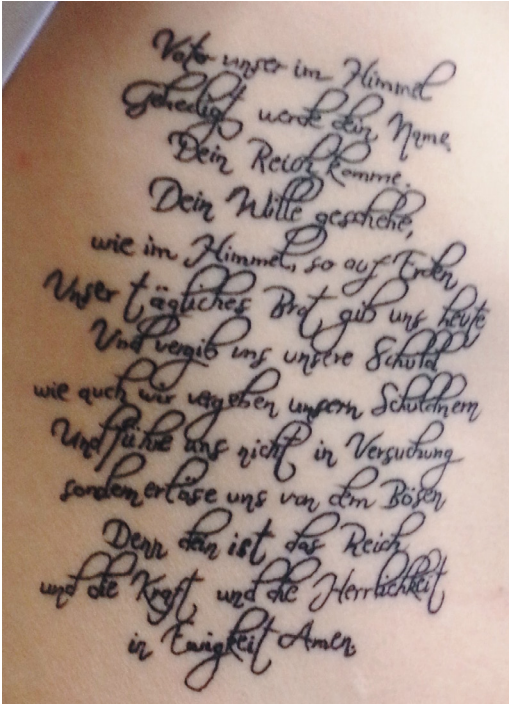 Vater unser im Himmel
Geheiligt werde dein Name.
Dein Reich komme.
Dein Wille geschehe,
wie im Himmel, so auf Erden
Unser tägliches Brot, gib uns heute
Und vergib uns unsere Schuld
wie auch wir vergeben unsern Schuldnern
Und führe uns nicht in Versuchung
sondern erlöse uns von dem Bösen
Denn dein ist das Reich
und die Kraft und die Herrlichkeit
in Ewigkeit Amen.